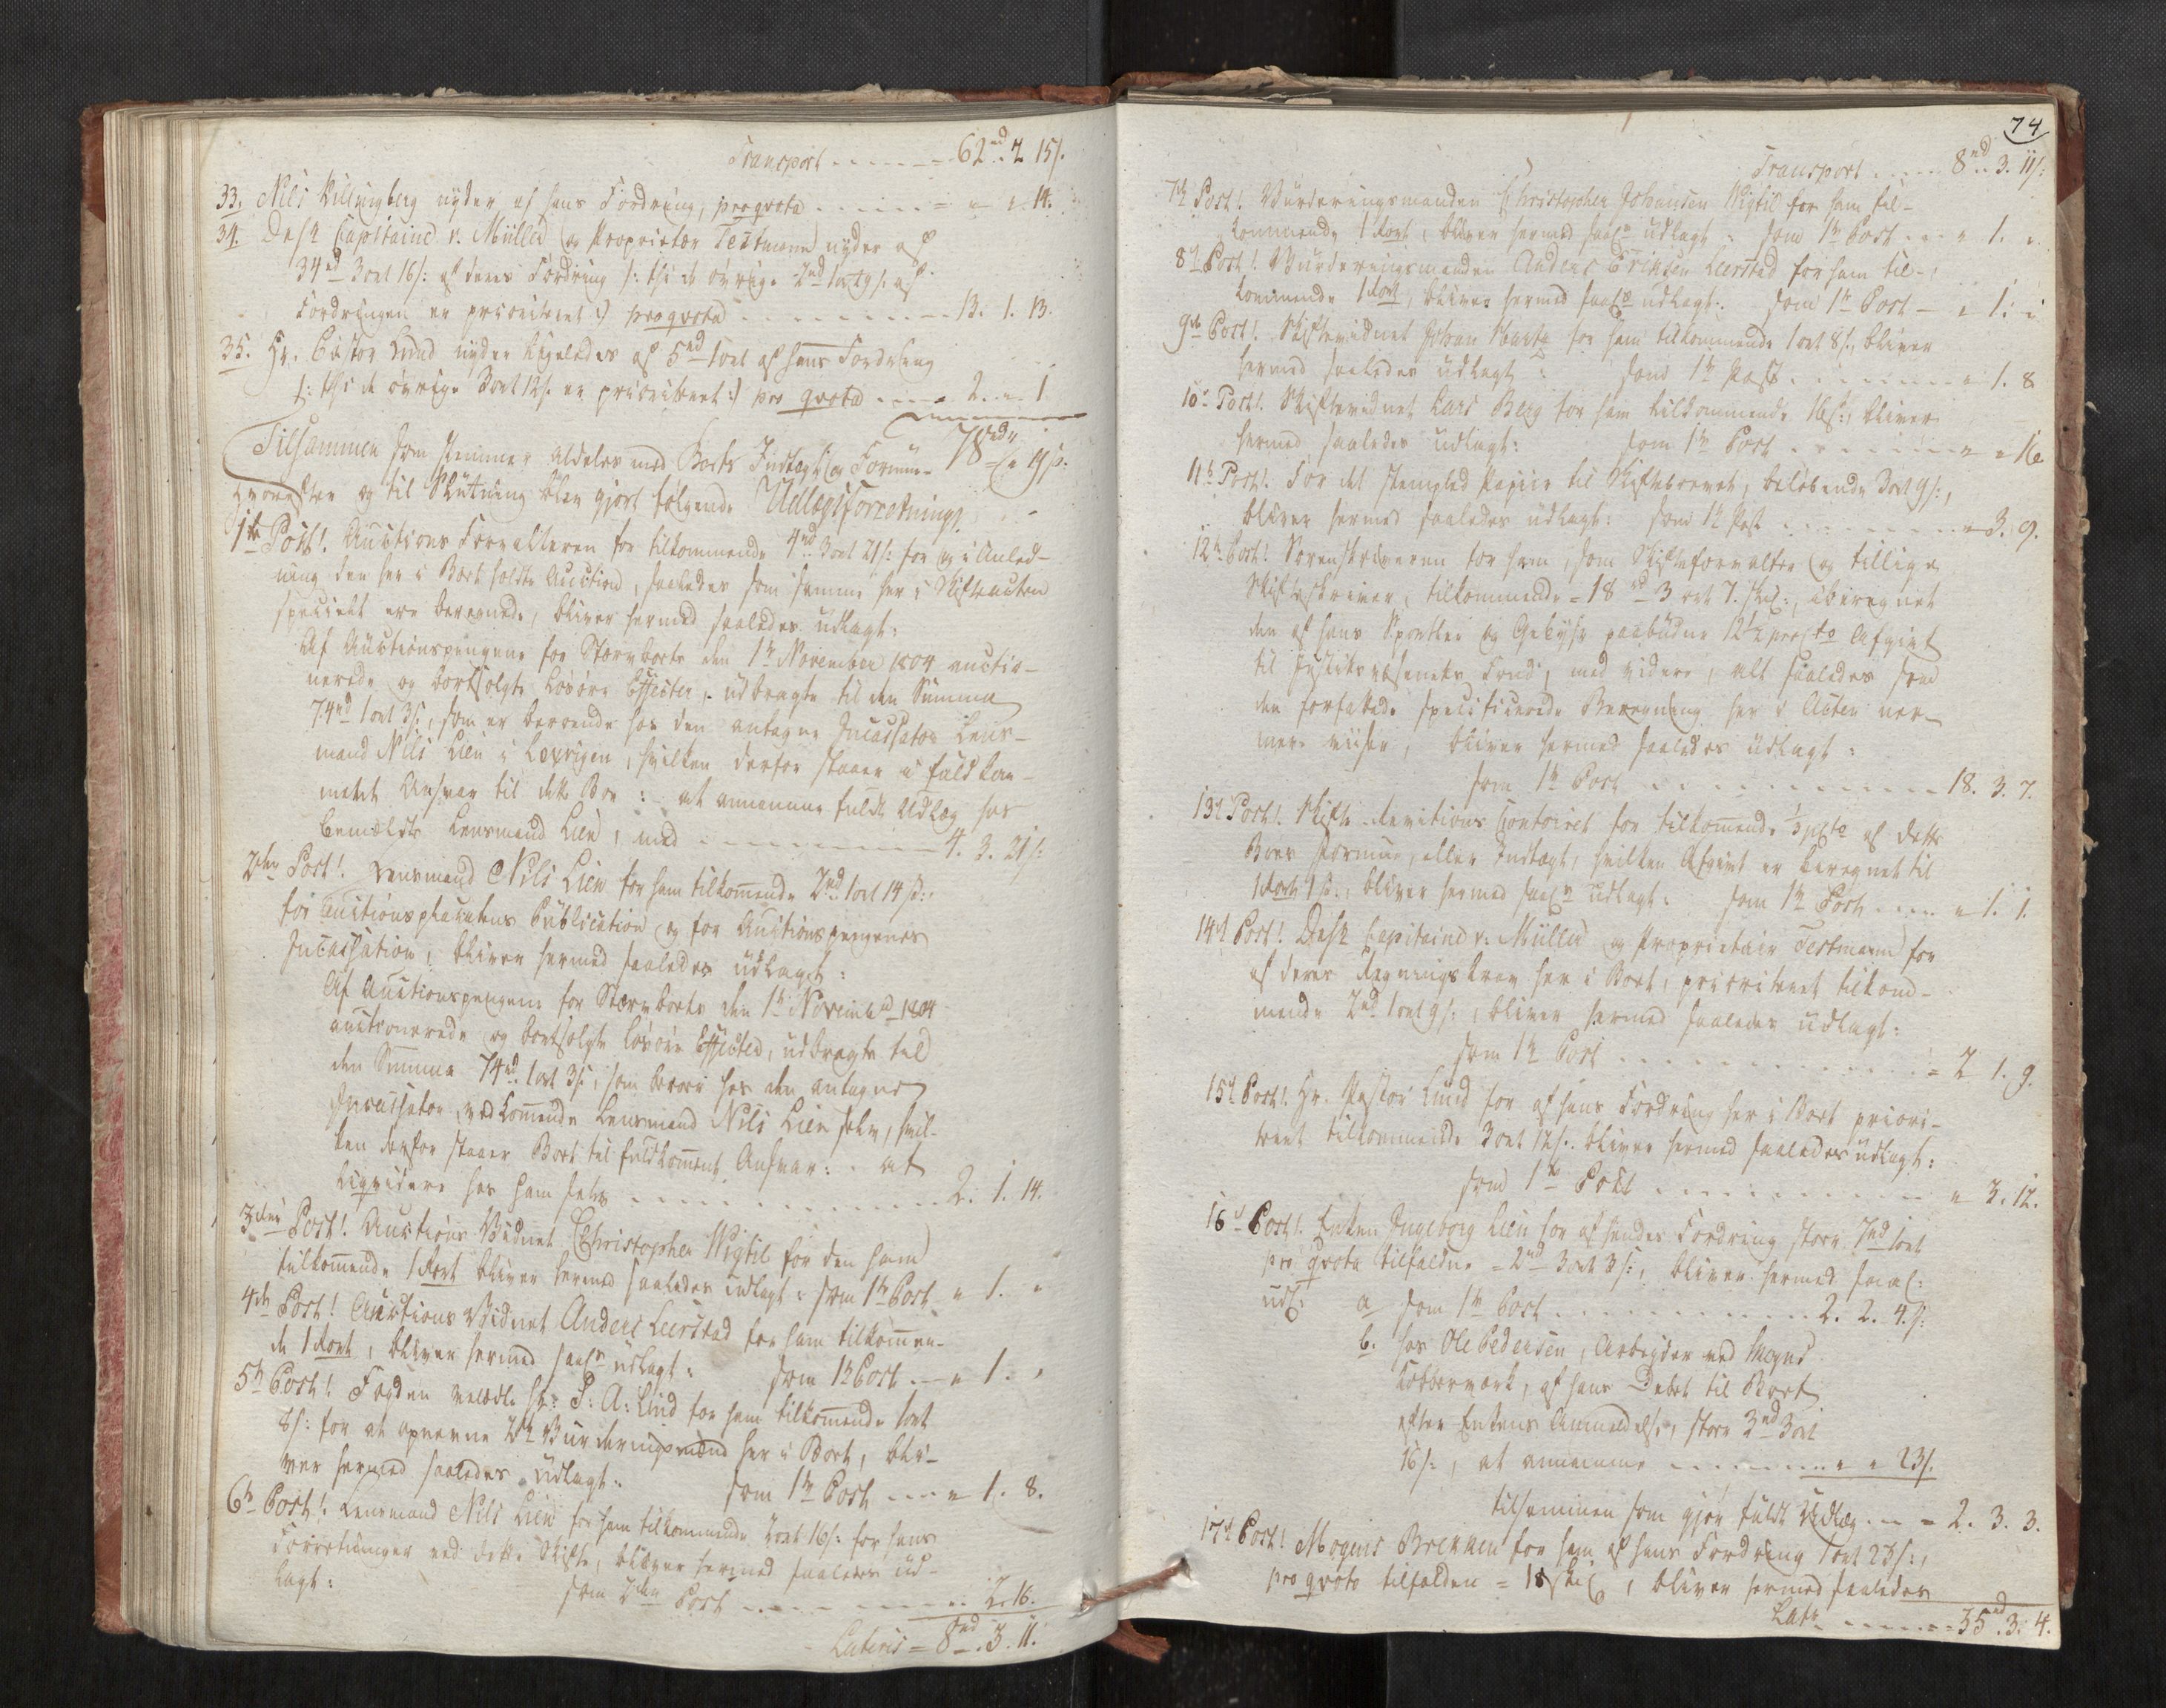 Transport - - - - - 62rd. 2. 15s.
33. Nils Killingberg nyder af hans Fordring, pro qvota - - - - " " 14.
34. Dhrr Capitaine v. Müller og Proprietær Testmann nyder af
34rd 3ort 16s: af deres Fordring /: thi de øvrige 2rd 1ort 9s. af
Fordringen er prioriteret :/ pro qvota - - - - - 13. 1. 13.
35. Hr. Pastor Lund nyder ligeledes af 5rd 1ort af hans Fordring
/: thi de øvrige 3ort 12s. er prioriteret :/ pro qvota - - - 2. " 1
Tilsammen som stemmer aldeles med Boets Indtægt og Formue - 78rd " 19s:
Hvorefter og til Slutning blev gjort følgende Udlægsforretning.
1te Post! Auctions Forvalteren for tilkommende 4rd. 3ort 21s: for og i Anled-
ning den her i Boet holdte Auction, saaledes som samme her i Skifteacten
specielt ere beregnede, bliver hermed saaledes udlagt:
Af Auctionspengene for Stervboets den 1te November 1804 auctio-
nerede og bortsolgte Løsøre Effecter, udbragte til den Summa
74rd 1ort 3s:, som er beroende hos den antagne Incassator Lens-
mand Nils Lien i Lexvigen, hvilken derfor staaer i fuldkom-
ment Ansvar til dette Boe: at annamme fuldt Udlæg hos
bemældte Lensmand Lien, med - - - - - 4. 3. 21s:
2den Post! Lensmand Nils Lien for ham tilkommende 2rd 1ort 14s:
for Auctionsplacatens Publication og for Auctionspengenes
Incassation, bliver hermed saaledes udlagt:
Af Auctionspengene for Stervboets den 1te November 1804
auctionerede og bortsolgte Løsøre Effecter, udbragte til
den Summa 74rd. 1ort 3s:, som beroer hos den antagne
Incassator, vedkommende Lensmand Nils Lien selv, hvil-
ken derfor staaer Boet til fuldkomment Ansvar: at
liqvidere hos ham selv - - - - - 2. 1. 14.
3die Post! Auctions Vidnet Christopher Wigtil for den ham
tilkommende 1 Rort bliver hermed saaledes udlagt: som 1te Post " 1. "
4de Post! Auctions Vidnet Anders Leerstad for ham tilkommen-
de 1 Rort, bliver hermed saals udlagt: som 1te Post - - " 1. "
5te Post! Fogden velædle Hr: P: A: Lind for ham tilkommende 1ort
8s: for at opnævne 2de Vurderingsmænd her i Boet, bli-
ver hermed saaledes udlagt: som 1te Post - - - " 1. 8.
6te Post! Lensmand Nils Lien for ham tilkommende 2ort 16s: for hans
Forretninger ved dette Skifte, bliver hermed saaledes ud-
lagt: som 2den Post - - - - - 2. 16.
Lateris = 8rd. 3. 11.
74
Transport - - - - 8rd. 3. 11s:
7de Post! Vurderingsmanden Christopher Johansen Wigtil for ham til-
kommende 1 Rort, bliver hermed saals udlagt: som 1te Post - - " 1. "
8de Post! Vurderingsmanden Anders Eriksen Leerstad for ham til-
kommende 1 Rort, bliver hermed saals udlagt: som 1te Post - " 1. "
9de Post! Skiftevidnet Johan for ham tilkommende 1ort 8s., bliver
hermed saaledes udlagt: som 1te Post - - - - - " 1. 8
10de Post! Skiftevidnet Lars Berg for ham tilkommende 16s:, bliver
hermed saaledes udlagt: som 1te Post - - - - - " " 16
11te Post! For det stemplede Papiir til Skiftebrevet, beløbende 3ort 9s:,
bliver hermed saaledes udlagt: som 1te Post - - - - - " 3. 9.
12te Post! Sorenskriveren for ham, som Skifteforvalter og tillige
Skifteskriver, tilkommende = 18rd 3 ort 7. skil:, iberegnet
den af hans Sportler og Gebyhr paabudne 12½ procto Afgivt
til Justitsvæsenets Fond, med videre, alt saaledes som
den forfattede specificerede Beregning her i Acten ner-
mere viiser, bliver hermed saaledes udlagt:
som 1te Post - - - - - 18. 3. 7.
13de Post! Skifte Revitions Contoiret for tilkommende ⅓ pcto af dette
Boes Formue, eller Indtægt, hvilken Afgivt er beregnet til
1 Rort 1s:, bliver hermed saals udlagt: som 1te Post - - - " 1. 1.
14de Post! Dhrr Capitaine v: Müller og Proprietair Testmann for
af deres Regningskrav her i Boet, prioriteret tilkom-
mende 2rd 1ort 9s:, bliver hermed saaledes udlagt:
som 1te Post - - - - - = 2 1. 9.
15de Post! Hr. Pastor Lund for af hans Fordring her i Boet priori-
teret tilkommende 3ort 12s. bliver hermed saaledes udlagt:
som 1te Post - - - - - " 3. 12.
16de Post! Enken Ingeborg Lien for af hendes Fordring stor 7rd 1ort
pro qvota tilfaldne = 2rd 3ort 3s:, bliver hermed saal:
udl: a som 1te Post - - - - - 2. 2. 4s:
b. hos Ole Pedersen, Arbeyder ved
Kobberværk, af hans Debet til Boet
efter Enkens Anmeldelse, stor 3rd 3ort
16s:, at annamme - - - - - " " 23s.
tilsammen som gjør fuldt Udlæg - - = 2. 3. 3.
17de Post! Mogens Brekken for ham af hans Fordring 1ort 23s:,
pro qvoto tilfalden = 18 skil, bliver hermed saaledes
Latr - - - - - 35rd. 3. 4.